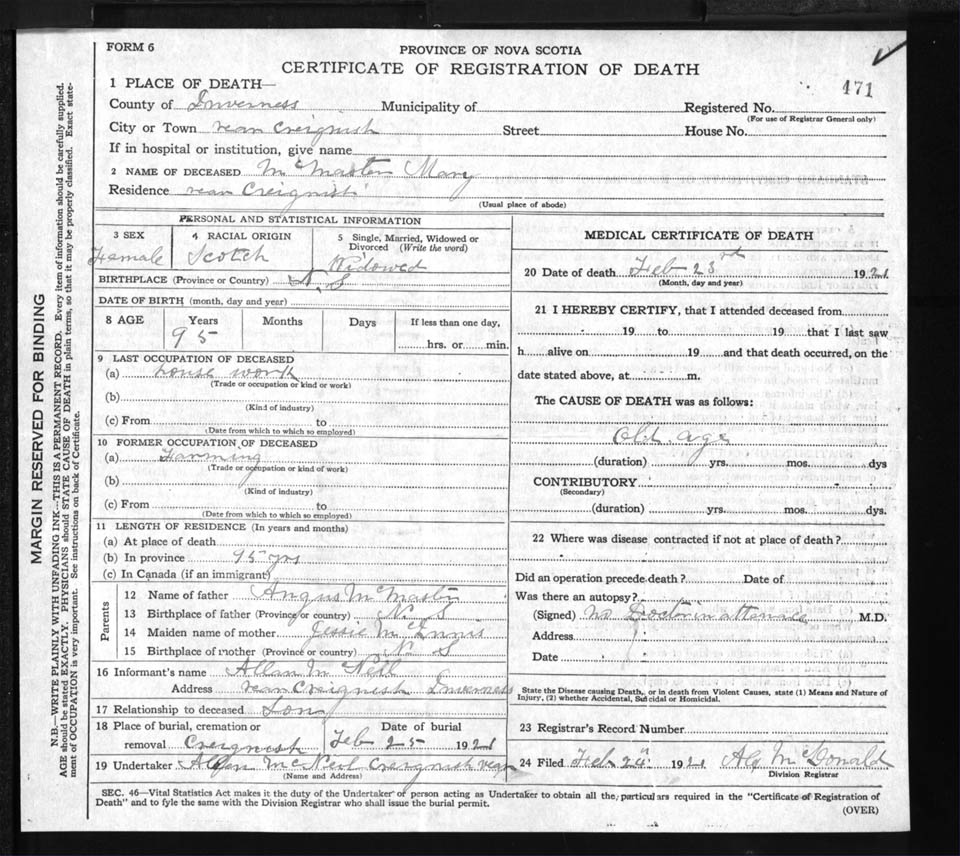 FORM 6
PROVINCE OF NOVA SCOTIA
CERTIFICATE OF REGISTRATION OF DEATH
471
1 PLACE OF DEATH—
County of Inverness Municipality of Registered No.
(For use of Registrar General only)
City or Town rear Creignish Street House No.
If in hospital or institution, give name
2 NAME OF DECEASED McMaster Mary
Residence rear Creignish
(Usual place of abode)
PERSONAL AND STATISTICAL INFORMATION
3 SEX 4 RACIAL ORIGIN 5 Single, Married, Widowed or Divorced (Write the word)
Female Scotch Widowed
BIRTHPLACE (Province or Country) N. S
DATE OF BIRTH (month, day and year)
8 AGE Years Months Days If less than one day,
95 hrs. or min.
9 LAST OCCUPATION OF DECEASED
(a) house work
(Trade or occupation or kind or work)
(b)
(Kind of industry)
(c) From to
(Date from which to which so employed)
10 FORMER OCCUPATION OF DECEASED
(a) Farming
(Trade or occupation or kind of work)
(b)
(Kind of industry)
(c) From to
(Date from which to which so employed)
11 LENGTH OF RESIDENCE (In years and months)
(a) At place of death
(b) In province 95 yrs
(c) In Canada (if an immigrant)
Parents
12 Name of father Angus McMaster
13 Birthplace of father (Province or country) N. S
14 Maiden name of mother Jessie McInnis
15 Birthplace of mother (Province or country) N S
16 Informant's name Allan McNeil
Address rear Creignish Inverness
17 Relationship to deceased Son
18 Place of burial, cremation or Date of burial
removal Creignish Feb 25 1921
19 Undertaker Allan McNeil Creignish rear
(Name and Address)
MEDICAL CERTIFICATE OF DEATH
20 Date of death Feb 23rd 1921
(Month, day and year)
21 I HEREBY CERTIFY, that I attended deceased from
19 to 19 that I last saw
h alive on 19 and that death occurred, on the
date stated above, at m.
The CAUSE OF DEATH was as follows:
Old age
(duration) yrs. mos. dys
CONTRIBUTORY
(Secondary)
(duration) yrs. mos. dys.
22 Where was disease contracted if not at place of death?
Did an operation precede death? Date of
Was there an autopsy?
(Signed) no Doctor in attendance M.D.
Address
Date
State the Disease causing Death, or in death from Violent Causes, state (1) Means and Nature of
Injury, (2) whether Accidental, Suicidal or Homicidal.
23 Registrar's Record Number
24 Filed Feb 24" 1921 McDonald
Division Registrar
SEC. 46—Vital Statistics Act makes it the duty of the Undertaker or person acting as Undertaker to obtain all the particulars required in the "Certificate of Registration of
Death" and to fyle the same with the Division Registrar who shall issue the burial permit.
(OVER)
MARGIN RESERVED FOR BINDING
N.B.—WRITE PLAINLY WITH UNFADING INK—THIS IS A PERMANENT RECORD. Every item of information should be carefully supplied.
AGE should be stated EXACTLY. PHYSICIANS should STATE CAUSE OF DEATH in plain terms, so that it may be properly classified. Exact state-
ment of OCCUPATION is very important. See instructions on back of Certificate.